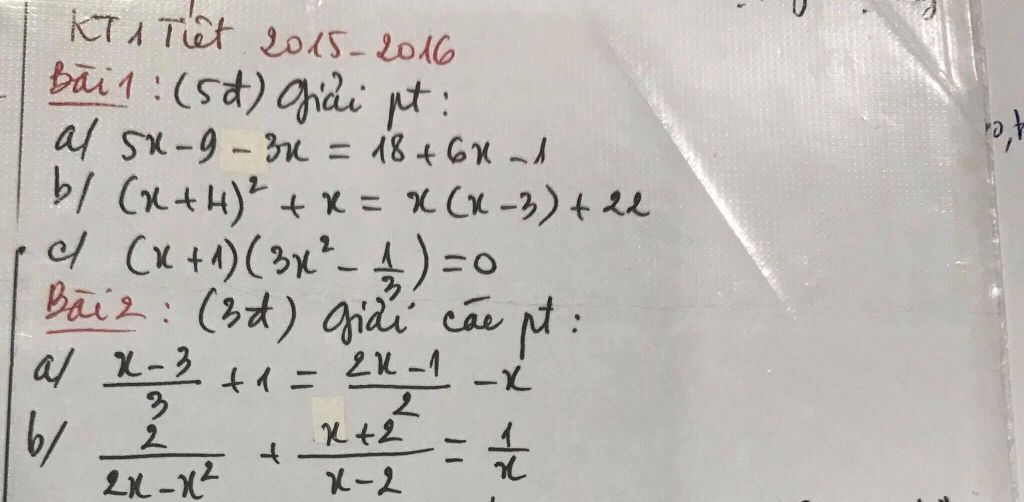 KT 1 Tiết 2015-2016
Bài 1 : (5đ) Giải pt :
a/ 5x - 9 - 3x = 18 + 6x - 1
b/ (x + 4)² + x = x (x - 3) + 22
c/ (x + 1) (3x² - 1/3) = 0
Bài 2 : (3đ) Giải các pt :
a/ (x - 3)/3 + 1 = (2x - 1)/2 - x
b/ 2/(2x - x²) + (x + 2)/(x - 2) = 1/x